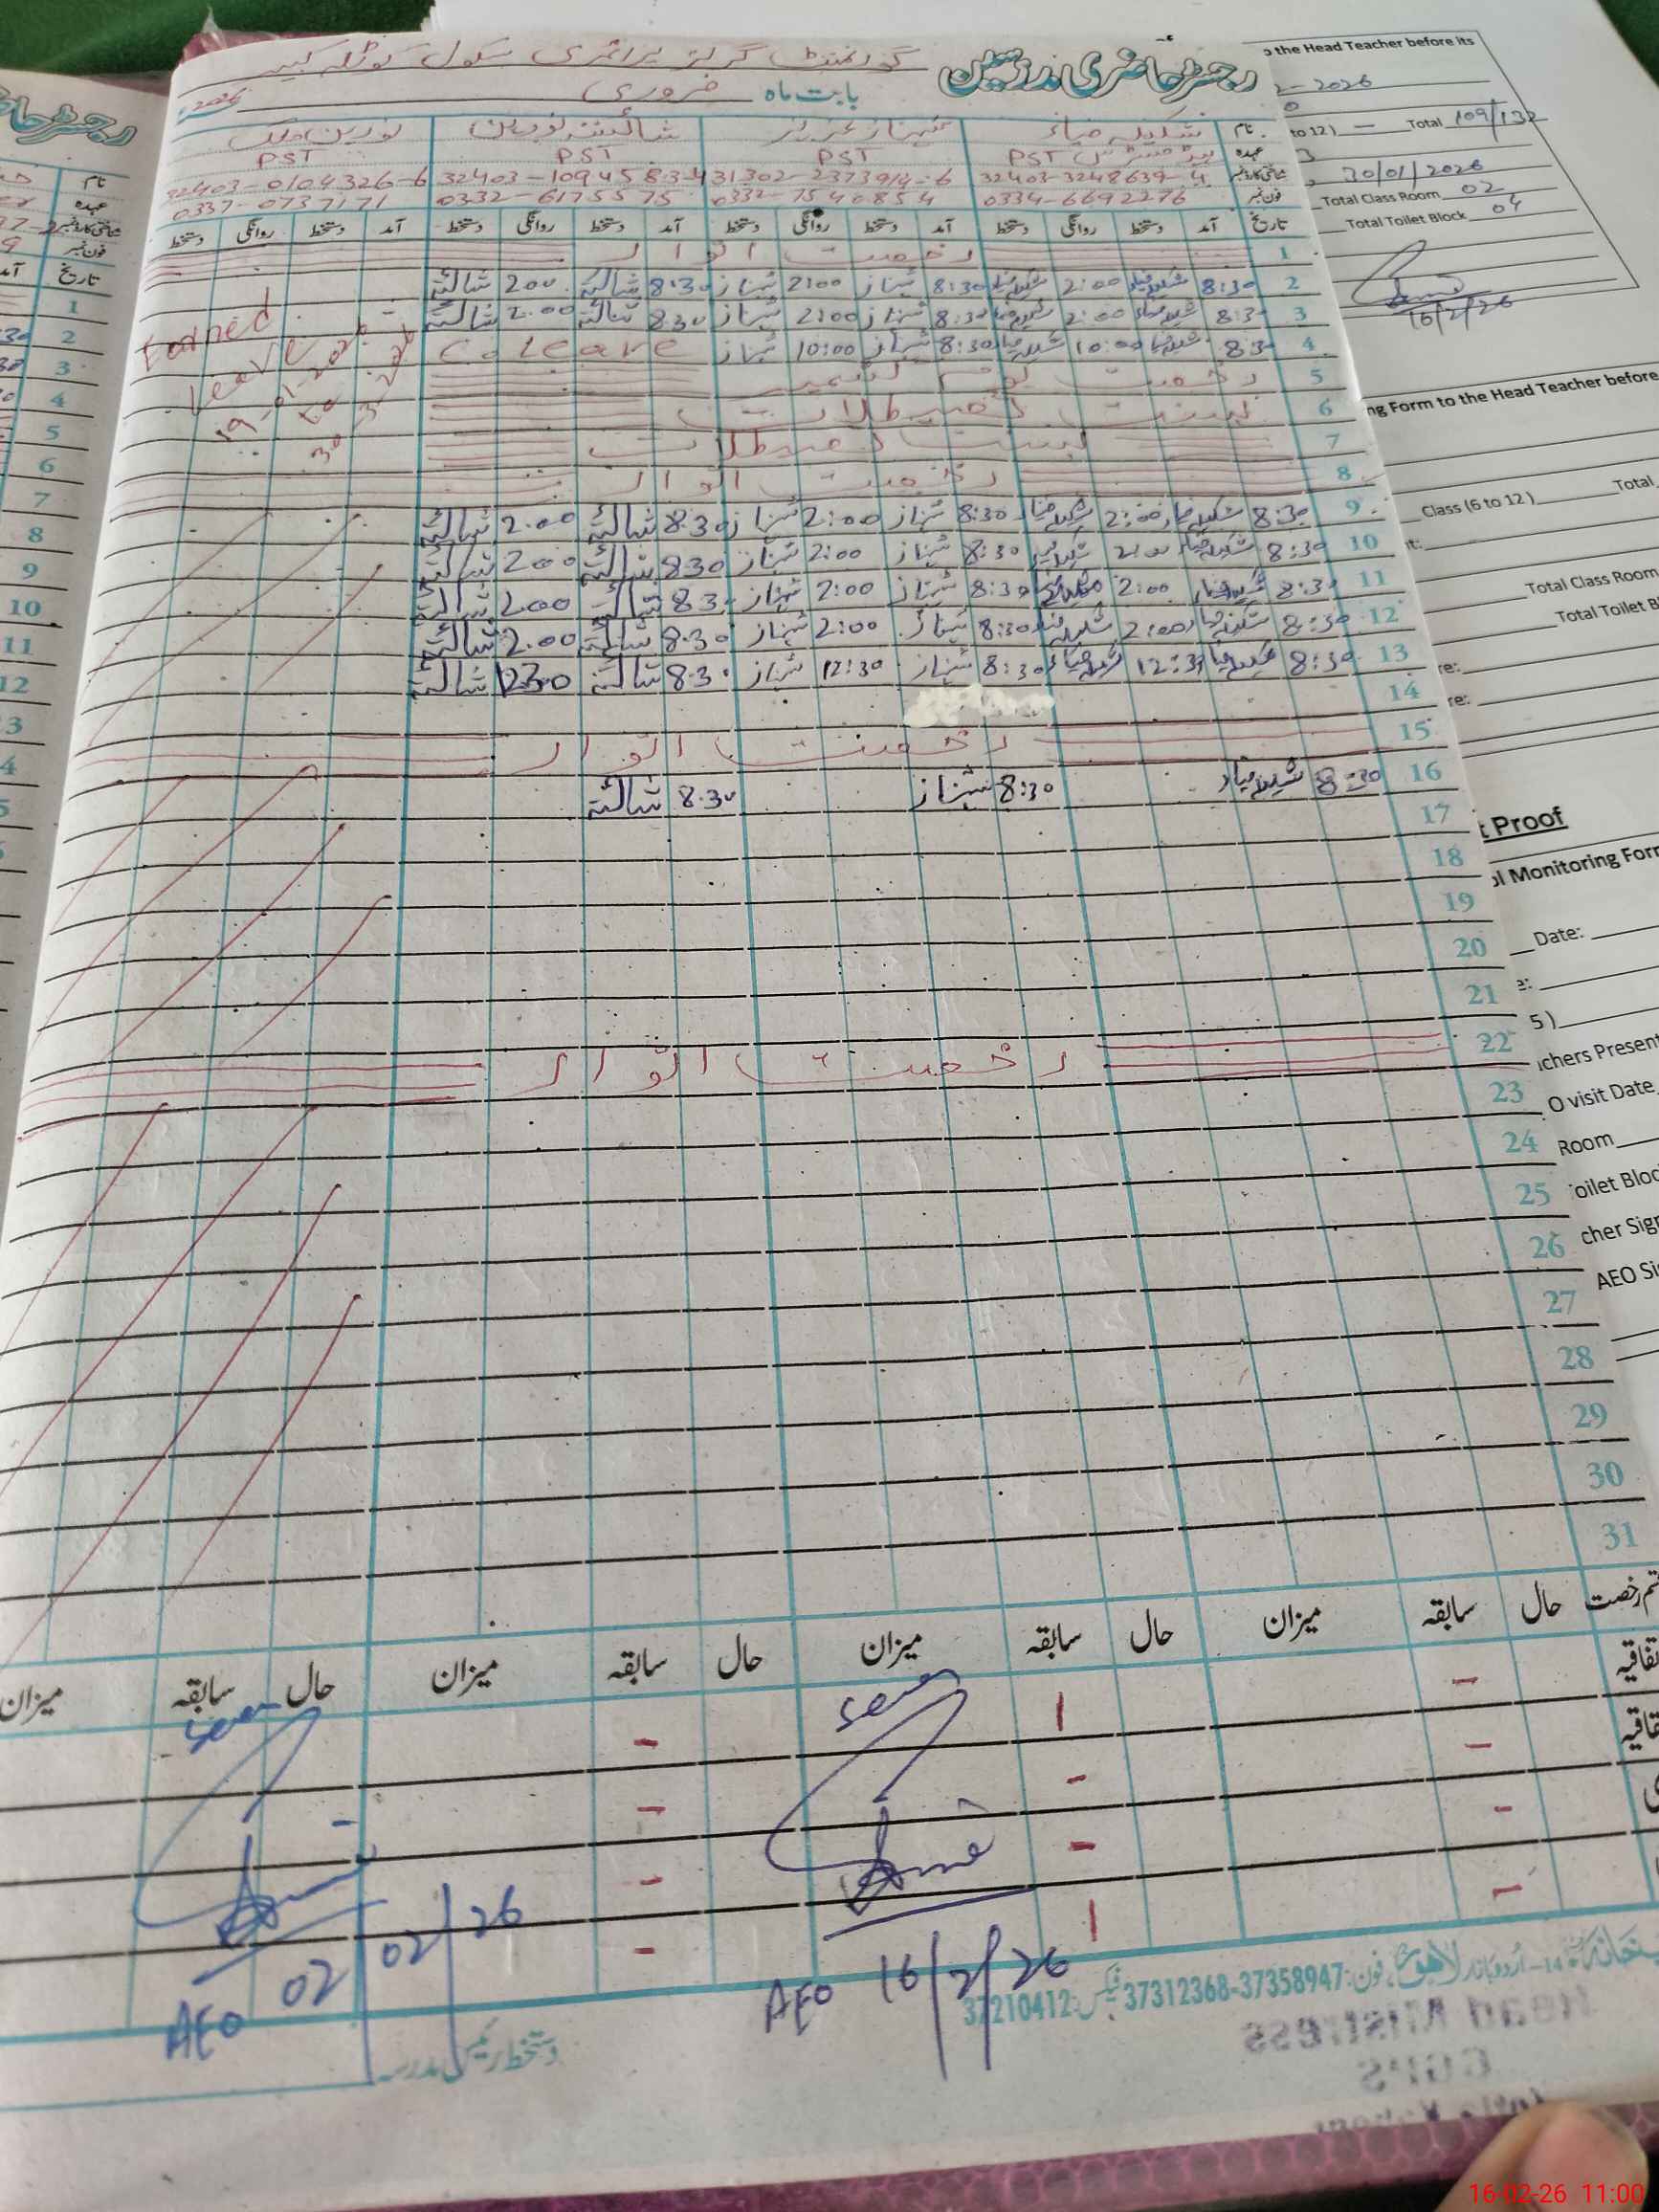 رجسٹر حاضری مدرسین گورنمنٹ گرلز پرائمری سکول کوٹلہ کبیر
بابت ماہ فروری 2026ء
نام شکیلہ ضیاء شہناز عزیز شائستہ نورین نورین ملک
عہدہ ہیڈ مسٹریس PST PST PST PST
شناختی کارڈ نمبر 32403-3248639-4 31302-2373914-6 32403-1094583-4 32403-0104326-6
فون نمبر 0334-6692276 0332-7540854 0332-6175575 0337-0737171
تاریخ آمد دستخط روانگی دستخط آمد دستخط روانگی دستخط آمد دستخط روانگی دستخط آمد دستخط روانگی دستخط
1 رخصت اتوار
2 8:30 شکیلہ ضیاء 2:00 شکیلہ ضیاء 8:30 شہناز 2:00 شہناز 8.30 شائستہ 2.00 شائستہ
3 8:30 شکیلہ ضیاء 2:00 شکیلہ ضیاء 8:30 شہناز 2:00 شہناز 8.30 شائستہ 2.00 شائستہ
4 8:30 شکیلہ ضیاء 10:00 شکیلہ ضیاء 8:30 شہناز 10:00 شہناز C. leave
Earned
leave
19-01-2026
to
30-3-2026
5 رخصت یوم کشمیر
6 بسنت تعطیلات
7 بسنت تعطیلات
8 رخصت اتوار
9 8:30 شکیلہ ضیاء 2:00 شکیلہ ضیاء 8:30 شہناز 2:00 شہناز 8.30 شائستہ 2.00 شائستہ
10 8:30 شکیلہ ضیاء 2:00 شکیلہ ضیاء 8:30 شہناز 2:00 شہناز 8.30 شائستہ 2.00 شائستہ
11 8:30 شکیلہ ضیاء 2:00 شکیلہ ضیاء 8:30 شہناز 2:00 شہناز 8.30 شائستہ 2.00 شائستہ
12 8:30 شکیلہ ضیاء 2:00 شکیلہ ضیاء 8:30 شہناز 2:00 شہناز 8.30 شائستہ 2.00 شائستہ
13 8:30 شکیلہ ضیاء 12:30 شکیلہ ضیاء 8:30 شہناز 12:30 شہناز 8.30 شائستہ 12.30 شائستہ
14
15 رخصت اتوار
16 8:30 شکیلہ ضیاء 8:30 شہناز 8.30 شائستہ
17
18
19
20
21
22 رخصت اتوار
23
24
25
26
27
28
29
30
31
رخصت حال سابقہ میزان حال سابقہ میزان حال سابقہ میزان حال سابقہ میزان
- 1 -
- - -
- - -
- 1 -
Seen
AEO 16/2/26
Seen
AEO 02/02/26
14-اُردو بازار لاہور، فون: 37312368-37358947 فیکس: 37210412
دستخط رئیس مدرسہ
Head Mistress
GGPS
رجسٹر
نام
عہدہ
شناختی کارڈ نمبر
فون نمبر
تاریخ
1
2
3
4
5
6
7
8
9
10
11
12
the Head Teacher before its
2026
to 12) — Total 109/132
30/01/2026
Total Class Room 02
Total Toilet Block 04
16/2/26
ng Form to the Head Teacher before
Class (6 to 12) Total
Total Class Room
Total Toilet
Proof
Monitoring Form
Date:
5)
chers Present
O visit Date
Room
oilet Bloc
cher Sig
AEO Si
16-02-26 11:00